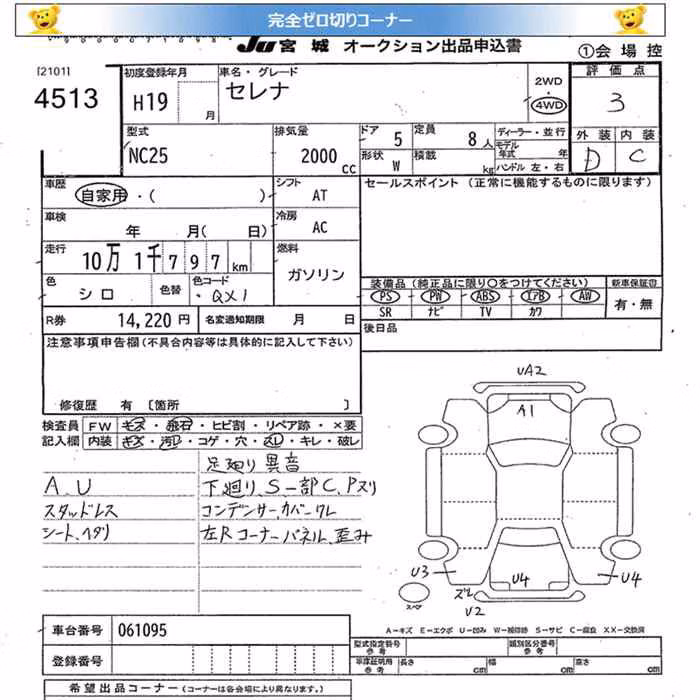 完全ゼロ切りコーナー
Ju 宮城 オークション出品申込書
①会場控
[2101]
4513
初度登録年月
H19
月
車名・グレード
セレナ
2WD
4WD
評価点
3
外装 内装
D C
型式
NC25
排気量
2000
CC
ドア 5
定員 8人
形状 W
積載 kg
ディーラー・並行
モデル年式 年
ハンドル 左・右
車歴
自家用・( )
シフト
AT
セールスポイント (正常に機能するものに限ります)
車検
年 月( 日)
冷房
AC
走行
10万 1千 7 9 7 km
燃料
ガソリン
色
シロ
色替
色コード
QX1
装備品 (純正品に限り○をつけてください)
PS PW ABS エアB AW
SR ナビ TV カワ
新車保証書
有・無
R券 14,220 円
名変通知期限 月 日
後日品
注意事項申告欄(不具合内容等は具体的に記入して下さい)
修復歴 有 〔箇所 〕
検査員
記入欄
FW キズ・飛石・ヒビ割・リペア跡・×要
内装 キズ・汚レ・コゲ・穴・スレ・キレ・破レ
足廻り異音
A、U
下廻り、S、一部C、Pスリ
スタッドレス
コンデンサーカバーワレ
シート、ヘタリ
左Rコーナーパネル、歪み
UA2
A1
U3
ズレ
U2
U4
U4
スペア
A−キズ E−エクボ U−凹み W−補修跡 S−サビ C−腐食 XX−交換済
車台番号 061095
登録番号
型式指定番号 参考
類別区分番号 参考
車庫証明用 参考
長さ cm 幅 cm 高さ cm
希望出品コーナー (コーナーは各会場により異なります。)